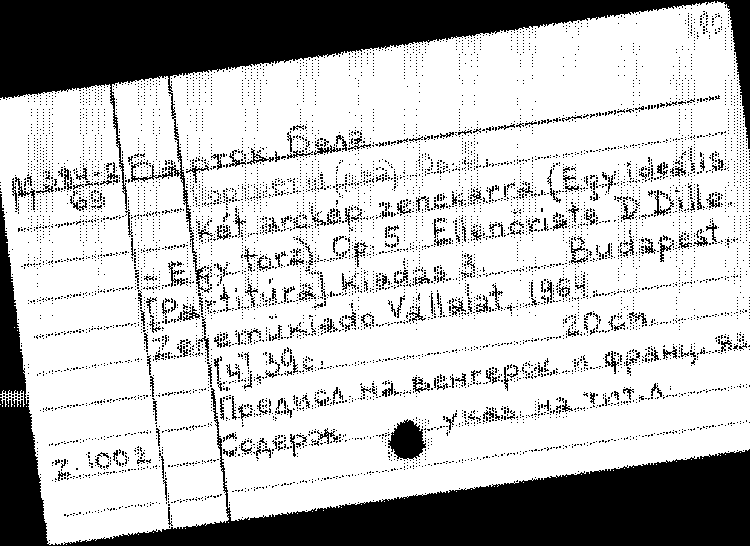 М394-2 Барток, Бела
63 Портреты (два). Op. 5.
Két arckáp zenekarra. (Egy ideális
- Egy torz) Op. 5. Ellenőrizte D. Dille.
[Partitúra]. kiadas 3. Budapest,
Zeneműkiado Vállalat, 1964.
[4], 39 с. 20 cm.
Предисл. на венгерск. и франц. яз.
Содерж. указ. на тит. л.
2.1002